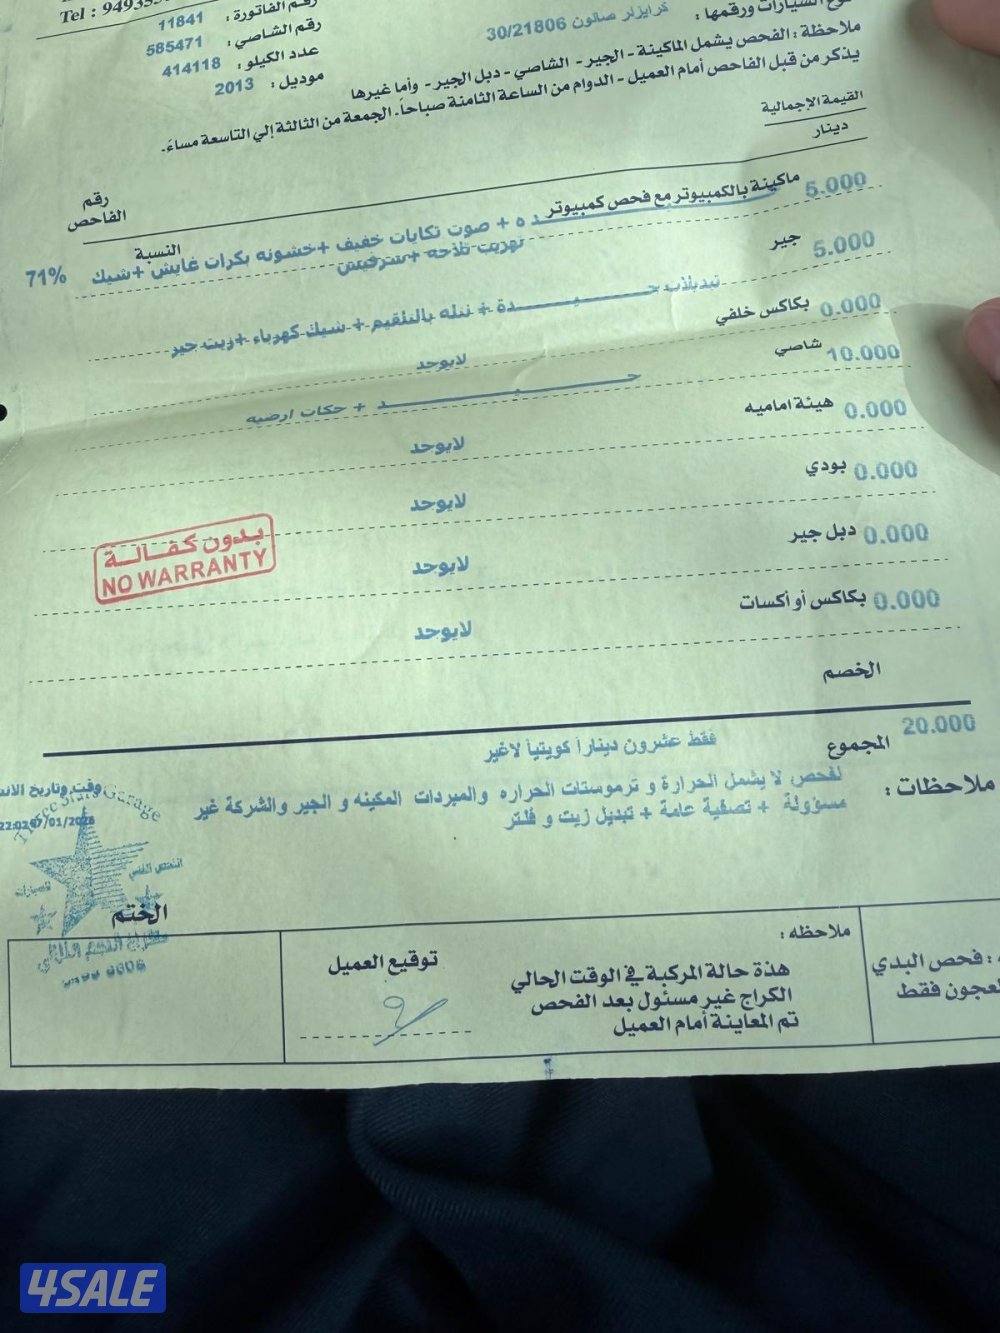 Tel : 94935
رقم الفاتورة : 11841
رقم الشاصي : 585471
عدد الكيلو : 414118
موديل : 2013
السيارات ورقمها : كرايزلر صالون 30/21806
ملاحظة : الفحص يشمل الماكينة - الجير - الشاصي - دبل الجير - وأما غيرها
يذكر من قبل الفاحص أمام العميل - الدوام من الساعة الثامنة صباحاً. الجمعة من الثالثة إلي التاسعة مساءً.
القيمة الإجمالية
دينار
رقم الفاحص
النسبة
5.000 ماكينة بالكمبيوتر مع فحص كمبيوتر
ده + صوت تكايات خفيف +خشونه بكرات غايش +شيك 71%
تهريب تلاحه +سرفيس
5.000 جير
تبديلات جـــيـــدة + نتله بالتلقيم + شيك كهرباء +زيت جير
0.000 بكاكس خلفي
لايوجد
10.000 شاصي
جـــيـــد + حكات ارضيه
0.000 هيئة اماميه
لايوجد
0.000 بودي
لايوجد
0.000 دبل جير
لايوجد
بدون كفالة
NO WARRANTY
0.000 بكاكس أو أكسات
لايوجد
الخصم
20.000 المجموع
فقط عشرون ديناراً كويتياً لاغير
ملاحظات : لفحص لا يشمل الحرارة و ترموستات الحراره والمبردات المكينه و الجير والشركة غير
مسؤولة + تصفية عامة + تبديل زيت و فلتر
وقت وتاريخ
Three Stars Garage
الفحص الفني
للسيارات
الختم
: فحص البدي
لعجون فقط
ملاحظه :
هذة حالة المركبة في الوقت الحالي
الكراج غير مسئول بعد الفحص
تم المعاينة أمام العميل
توقيع العميل
4SALE